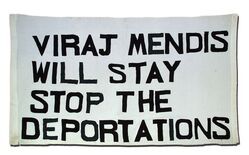 VIRAJ MENDIS
WILL STAY
STOP THE
DEPORTATIONS